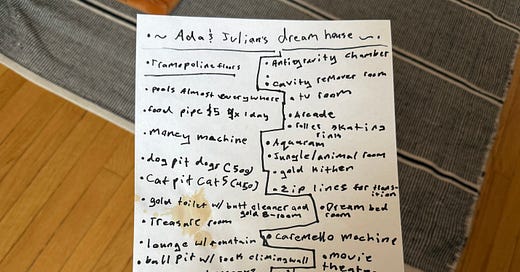 ~ Ada & Julian's dream house ~
• Trampoline floors
• pools Almost everywhere
• food pipe $5 4x 1 day
• Money machine
• dog pit dogs (500)
• Cat pit Cats (450)
• gold toilet w/ butt cleaner and gold B-room
• Treasure room
• lounge w/ fountain
• ball pit w/ sock climing wall
• Antigravity chamber
• cavity remover room
• tv room
• Arcade
• roller skating
rink
• Aquaram
• Jungle/animal room
• gold kithen
• Zip lines for
• Dream bed
room
• Caremello machine
• movie
theater